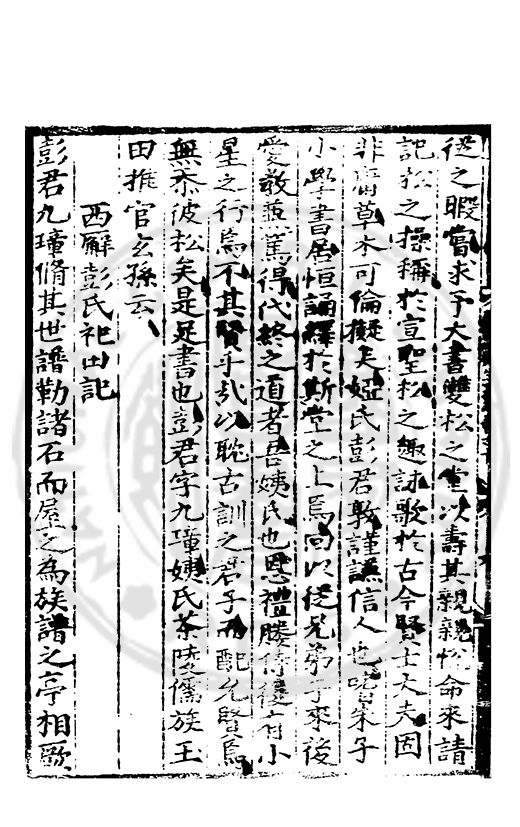 從之暇嘗求予大書雙松之堂以壽其親親悅命來請
記松之操稱於宣聖松之趣詠歌於古今賢士大夫固
非凡草木可倫擬矣婭氏彭君敦謹謙信人也嗜朱子
小學書居恒誦繹於斯堂之上焉同以從兄弟子來後
愛敬兼篤得代終之道者吾姨氏也恩禮勝侍後有小
星之行焉不其賢乎哉以耽古訓之君子而配允賢焉
無忝彼松矣是足書也彭君字九瑾姨氏茶陵儒族王
田推官玄孫云
西廨彭氏祀田記
彭君九瑾脩其世譜勒諸石而屋之為族譜之亭相歐